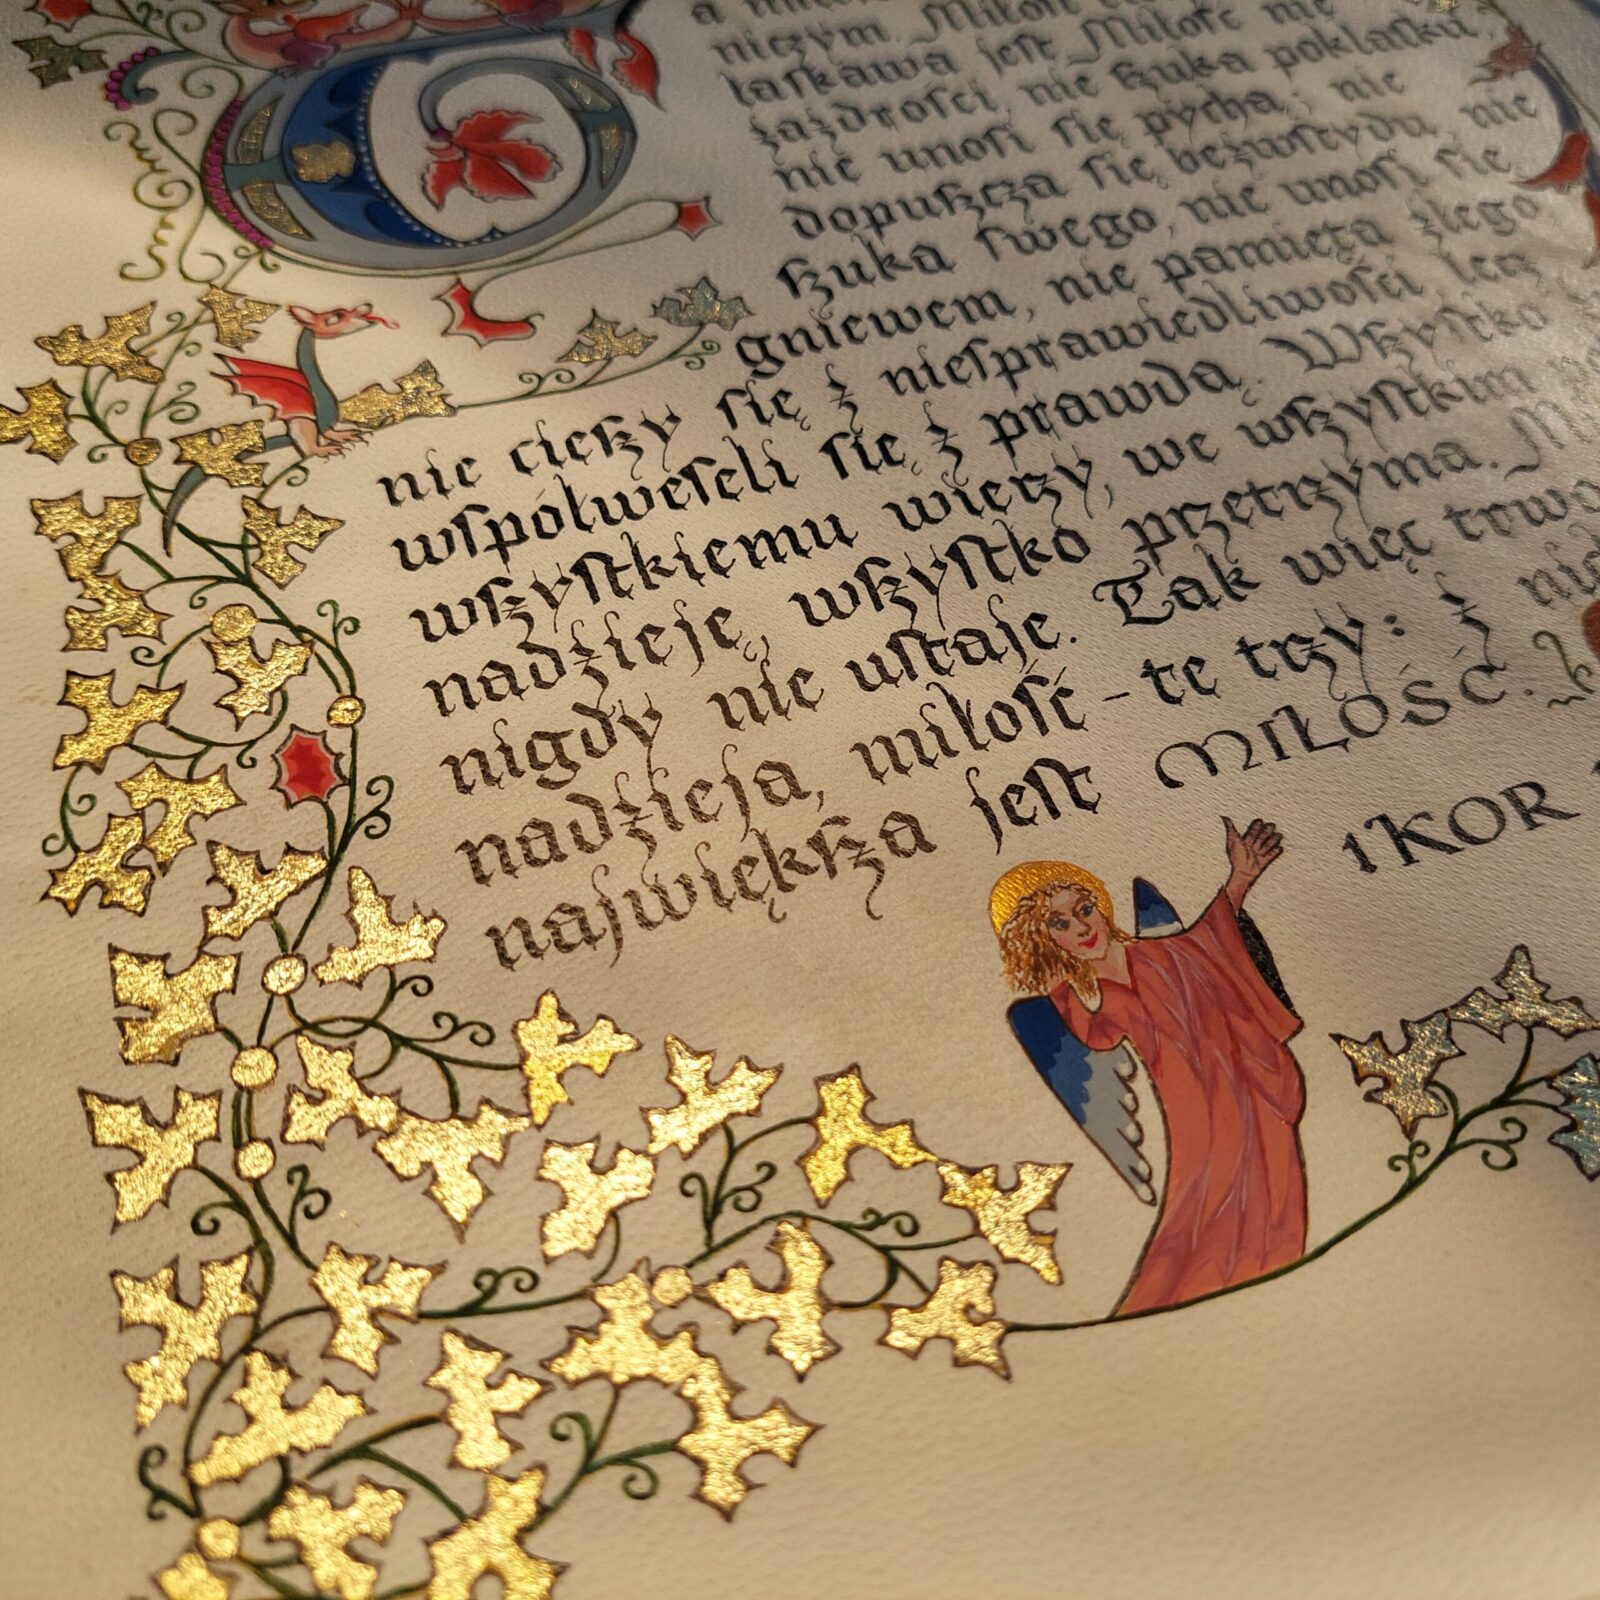 niczym Miłość
łaskawa jest Miłość nie
zazdrości nie szuka poklasku,
nie unosi się pychą; nie
dopuszcza się bezwstydu, nie
szuka swego, nie unosi się
gniewem, nie pamięta złego
nie cieszy się z niesprawiedliwości, lecz
współweseli się z prawdą. Wszystko
wszystkiemu wierzy, we wszystkim
nadzieję, wszystko przetrzyma.
nigdy nie ustaje. Tak więc trwa
nadzieja, miłość – te trzy: z
największa jest MIŁOŚĆ.
1 KOR